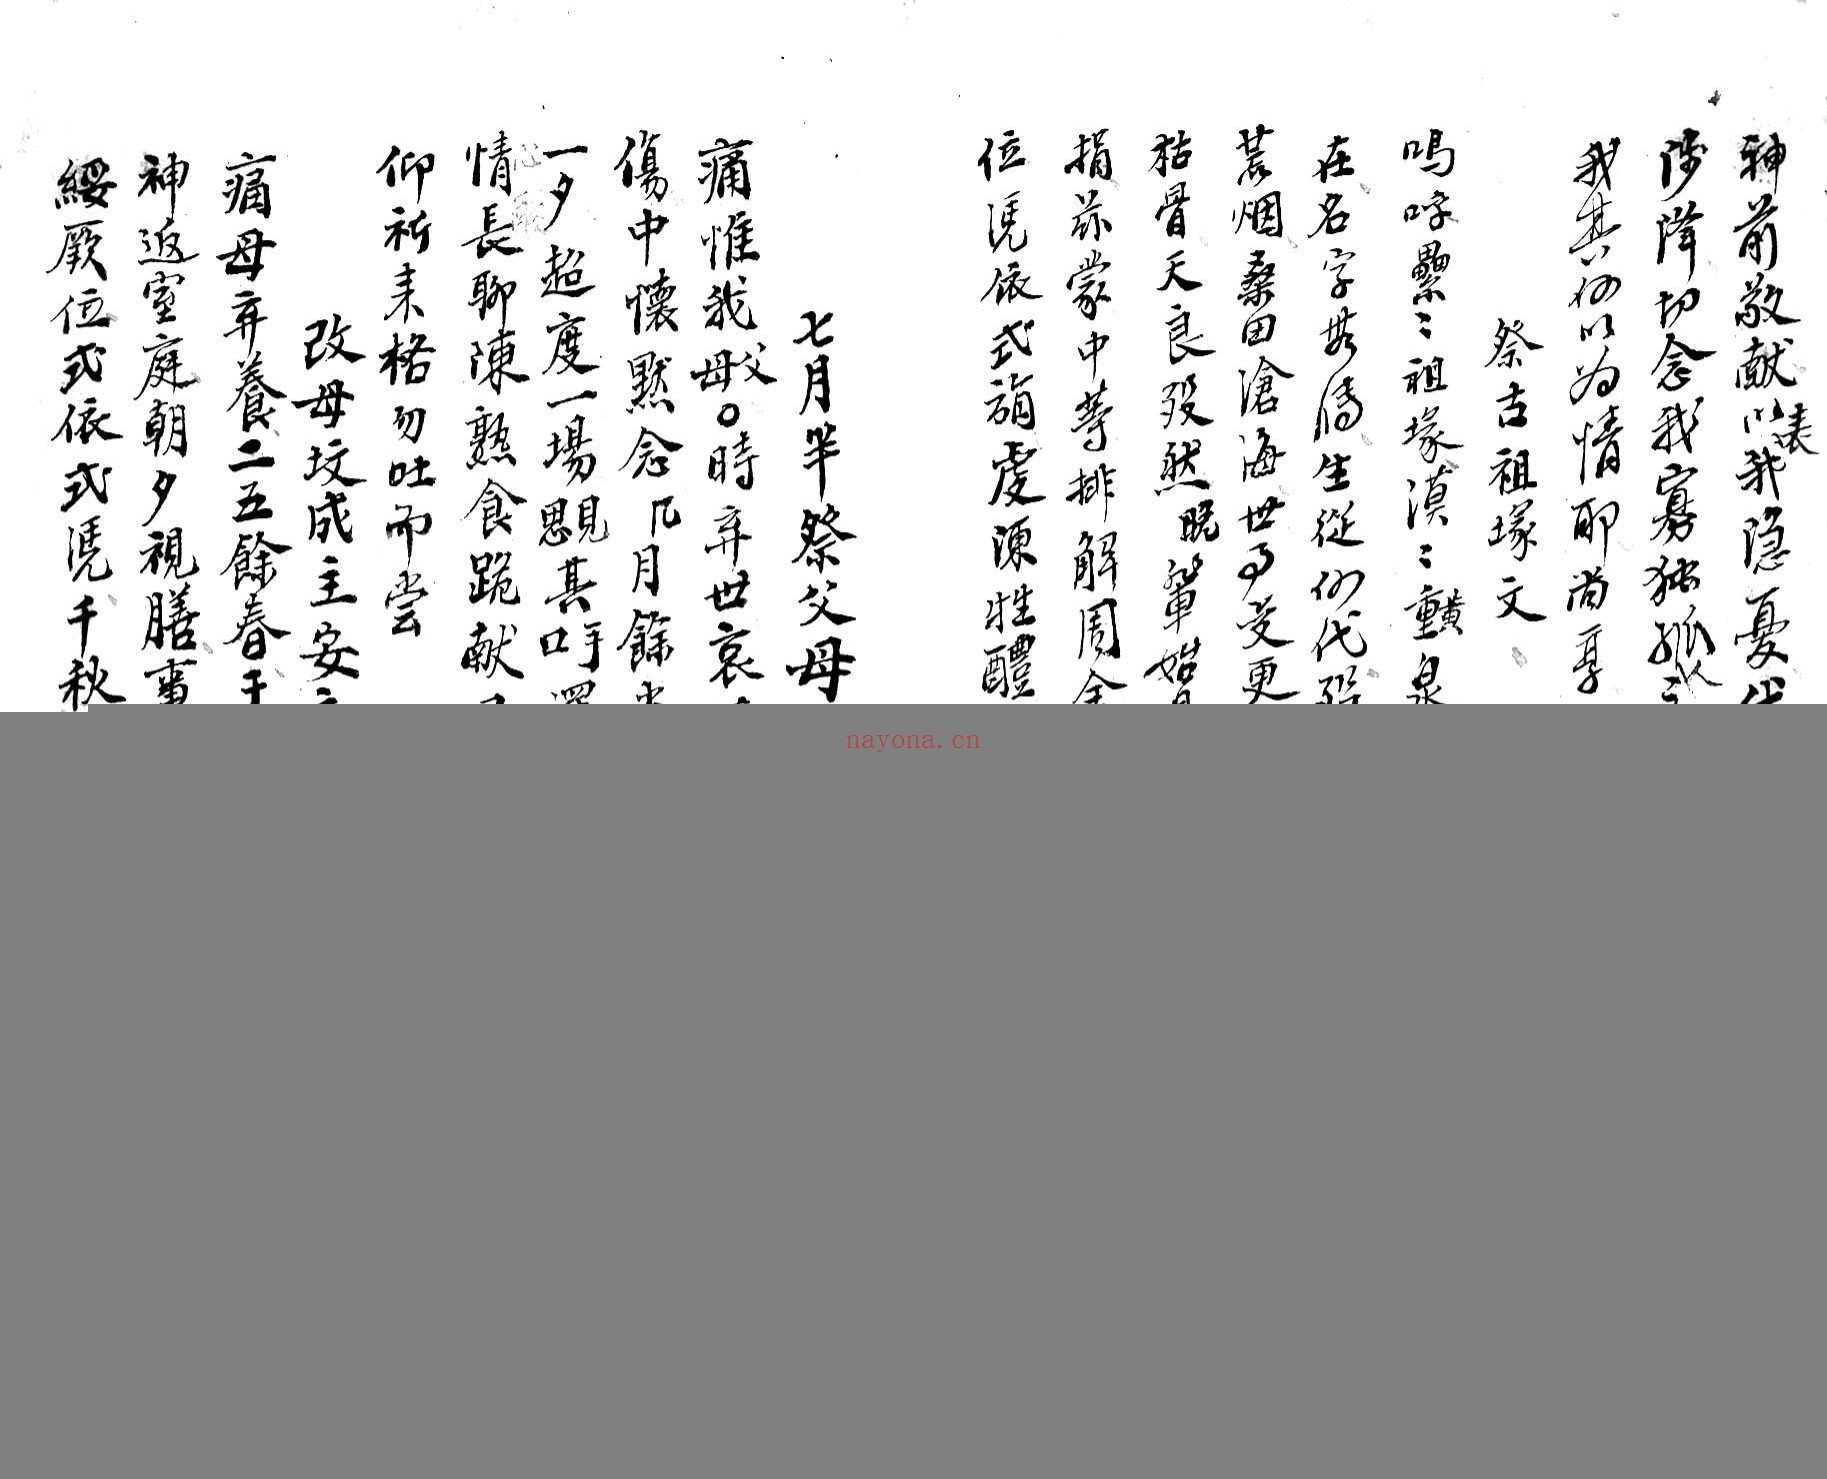 神前敬献以表我隐憂
陟降切念我寡独孤
我其何以為情耶尚享
祭古祖塚文
嗚呼纍〻祖塚漠〻黄泉
在名字無傳生從何代
荒烟桑田滄海世事变更
枯骨天良致然睨
捐兹蒙中等排解周全
位凭依式祔虔陳牲醴
七月半祭父母
痛惟我父母〇時弃世哀
傷中懷默念几月餘
一夕超度一場觀其
情長聊陳熟食跪献
仰祈来格勿吐而尝
改母坟成主安
痛母弃養二五餘春
神返室庭朝夕視膳
綏厥位式依式凭千秋
nayona.cn